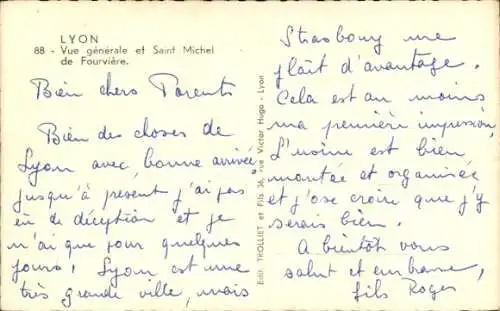 LYON
88 - Vue générale et Saint Michel
de Fourvière.
Bien chers Parents
Bien des choses de
Lyon avec bonne arrivée,
jusqu'à présent j'ai pas
eu de déception et je
n'ai que pour quelques
jours! Lyon est une
très grande ville, mais
Edit. TROLLIET et Fils 36, rue Victor Hugo - Lyon
Strasbourg me
plaît d'avantage.
Cela est au moins
ma première impression.
L'usine est bien
montée et organisée
et j'ose croire que j'y
serais bien.
A bientôt vous
salut et embrasse,
fils Roger